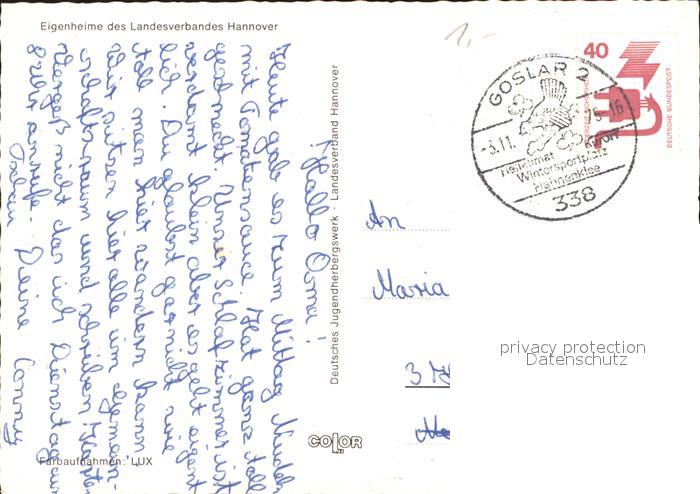 Eigenheime des Landesverbandes Hannover
Hallo Oma!
Heute gab es zum Mittag Nudeln
mit Tomatensauce. Hat ganz toll
geschmeckt. Unser Schlafzimmer ist
verdammt klein aber es geht eigent
lich. Du glaubst gar nicht wie
toll man hier wandern kann
Wir sitzen hier alle im Gemein-
schaftsraum und schreiben Karten
Vergeß nicht das ich Dienstag um
anrufe.
Tschau
Deine Conny
Farbaufnahmen: LUX
Deutsches Jugendherbergswerk · Landesverband Hannover
COLOR
LUX
1,-
GOSLAR 2
-3.11. 75-16
Heilklimat. Kurort
Wintersportplatz
Hahnenklee
338
40
DEUTSCHE BUNDESPOST
An
Maria
privacy protection
Datenschutz